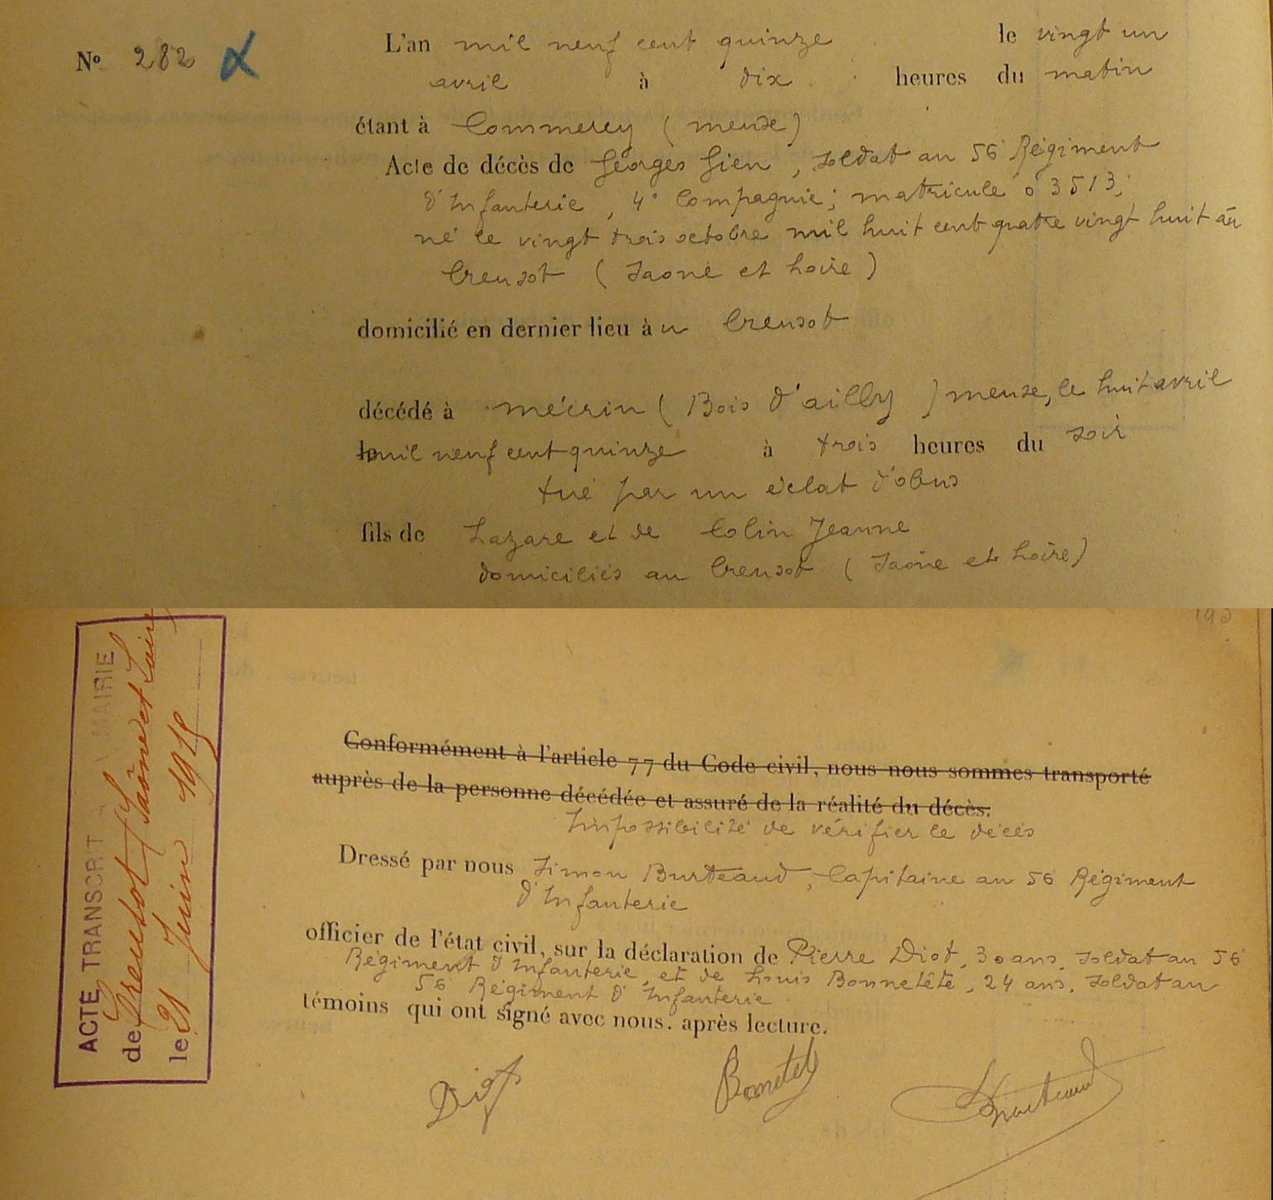 N° 282 α
L'an mil neuf cent quinze le vingt un
avril à dix heures du matin
étant à Commercy (meuse)
Acte de décès de Georges Gien, soldat au 56 Régiment
d'Infanterie, 4° Compagnie; matricule 03513;
né le vingt trois octobre mil huit cent quatre vingt huit au
Creusot (Saone et Loire)
domicilié en dernier lieu à u Creusot
décédé à mécrin (Bois d'ailly) meuse, le huit avril
le mil neuf cent quinze à trois heures du soir
tué par un éclat d'obus
fils de Lazare et de Colin Jeanne
domiciliés au Creusot (Saône et Loire)
ACTE TRANSCRIT MAIRIE
de Creusot Saône et Loire
le 21 Juin 1915
Conformément à l'article 77 du Code civil, nous nous sommes transporté
auprès de la personne décédée et assuré de la réalité du décès.
Impossibilité de vérifier le décès
Dressé par nous Simon Burteaud, Capitaine au 56 Régiment
d'Infanterie
officier de l'état civil, sur la déclaration de Pierre Diot, 30 ans, soldat au 56
Régiment d'Infanterie, et de Louis Bonnetête, 24 ans, soldat au
56 Régiment d'Infanterie
témoins qui ont signé avec nous. après lecture.
Diot Bonnetete Burteaud